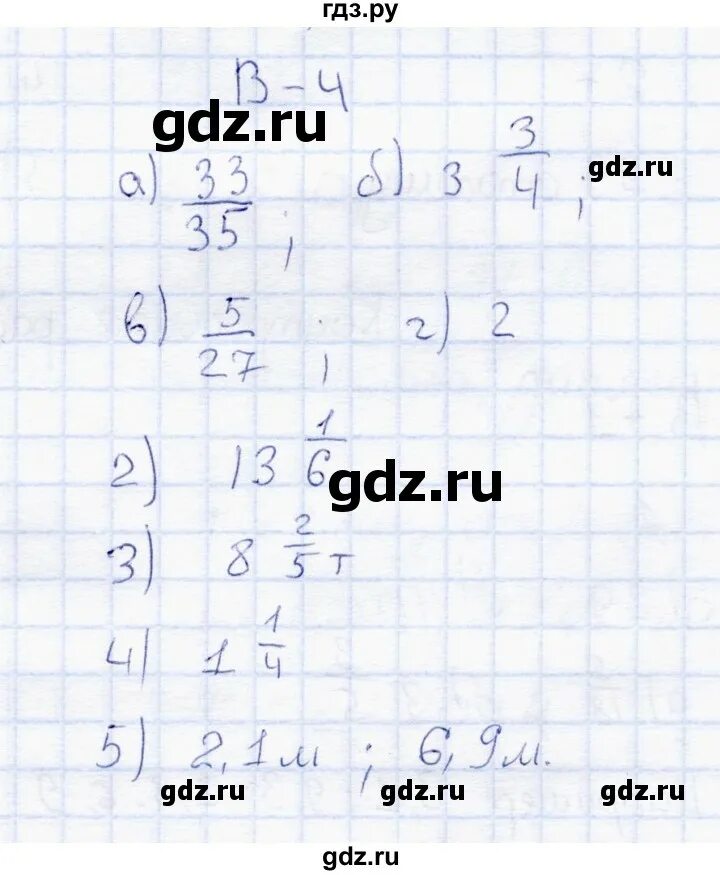 гдз.ру
В-4
gdz.ru
а) 33/35 ; б) 3 3/4 ;
gdz.ru
в) 5/27 ; г) 2
2) 13 1/6
gdz.ru
3) 8 2/5 т
4) 1 1/4
5) 2,1м ; 6,9м.
gdz.ru gdz.ru gdz.ru
gdz.ru